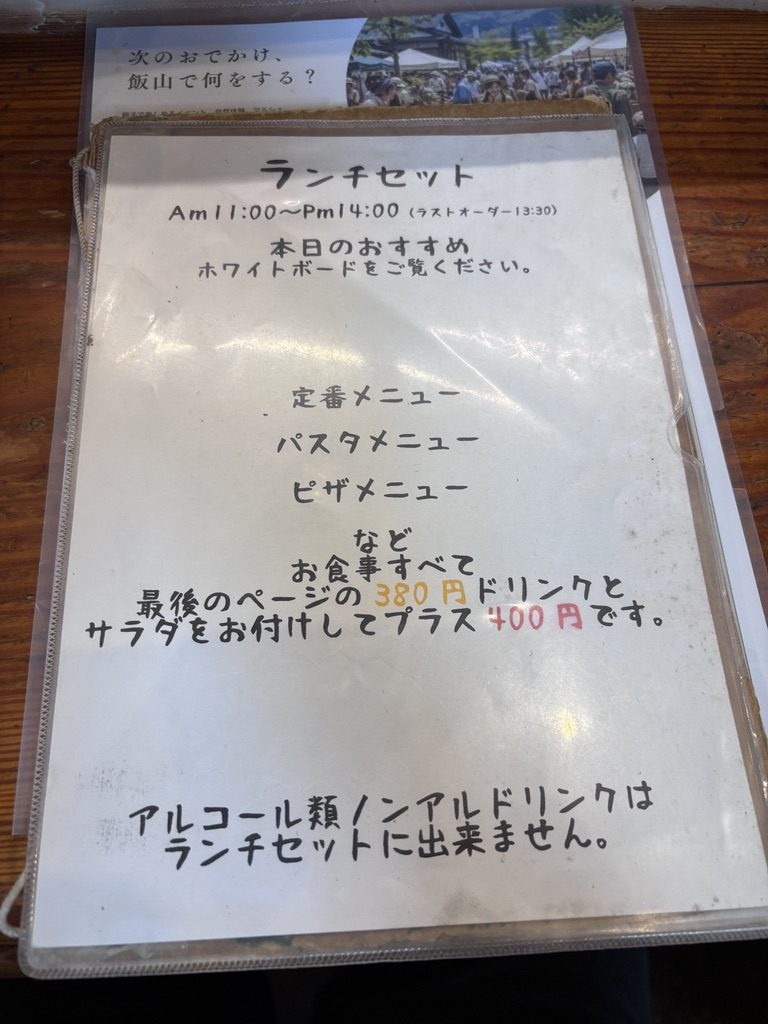 次のおでかけ、
飯山で何をする？
ランチセット
Am11:00～Pm14:00（ラストオーダー13:30）
本日のおすすめ
ホワイトボードをご覧ください。
定番メニュー
パスタメニュー
ピザメニュー
など
お食事すべて
最後のページの380円ドリンクと
サラダをお付けしてプラス400円です。
アルコール類ノンアルドリンクは
ランチセットに出来ません。